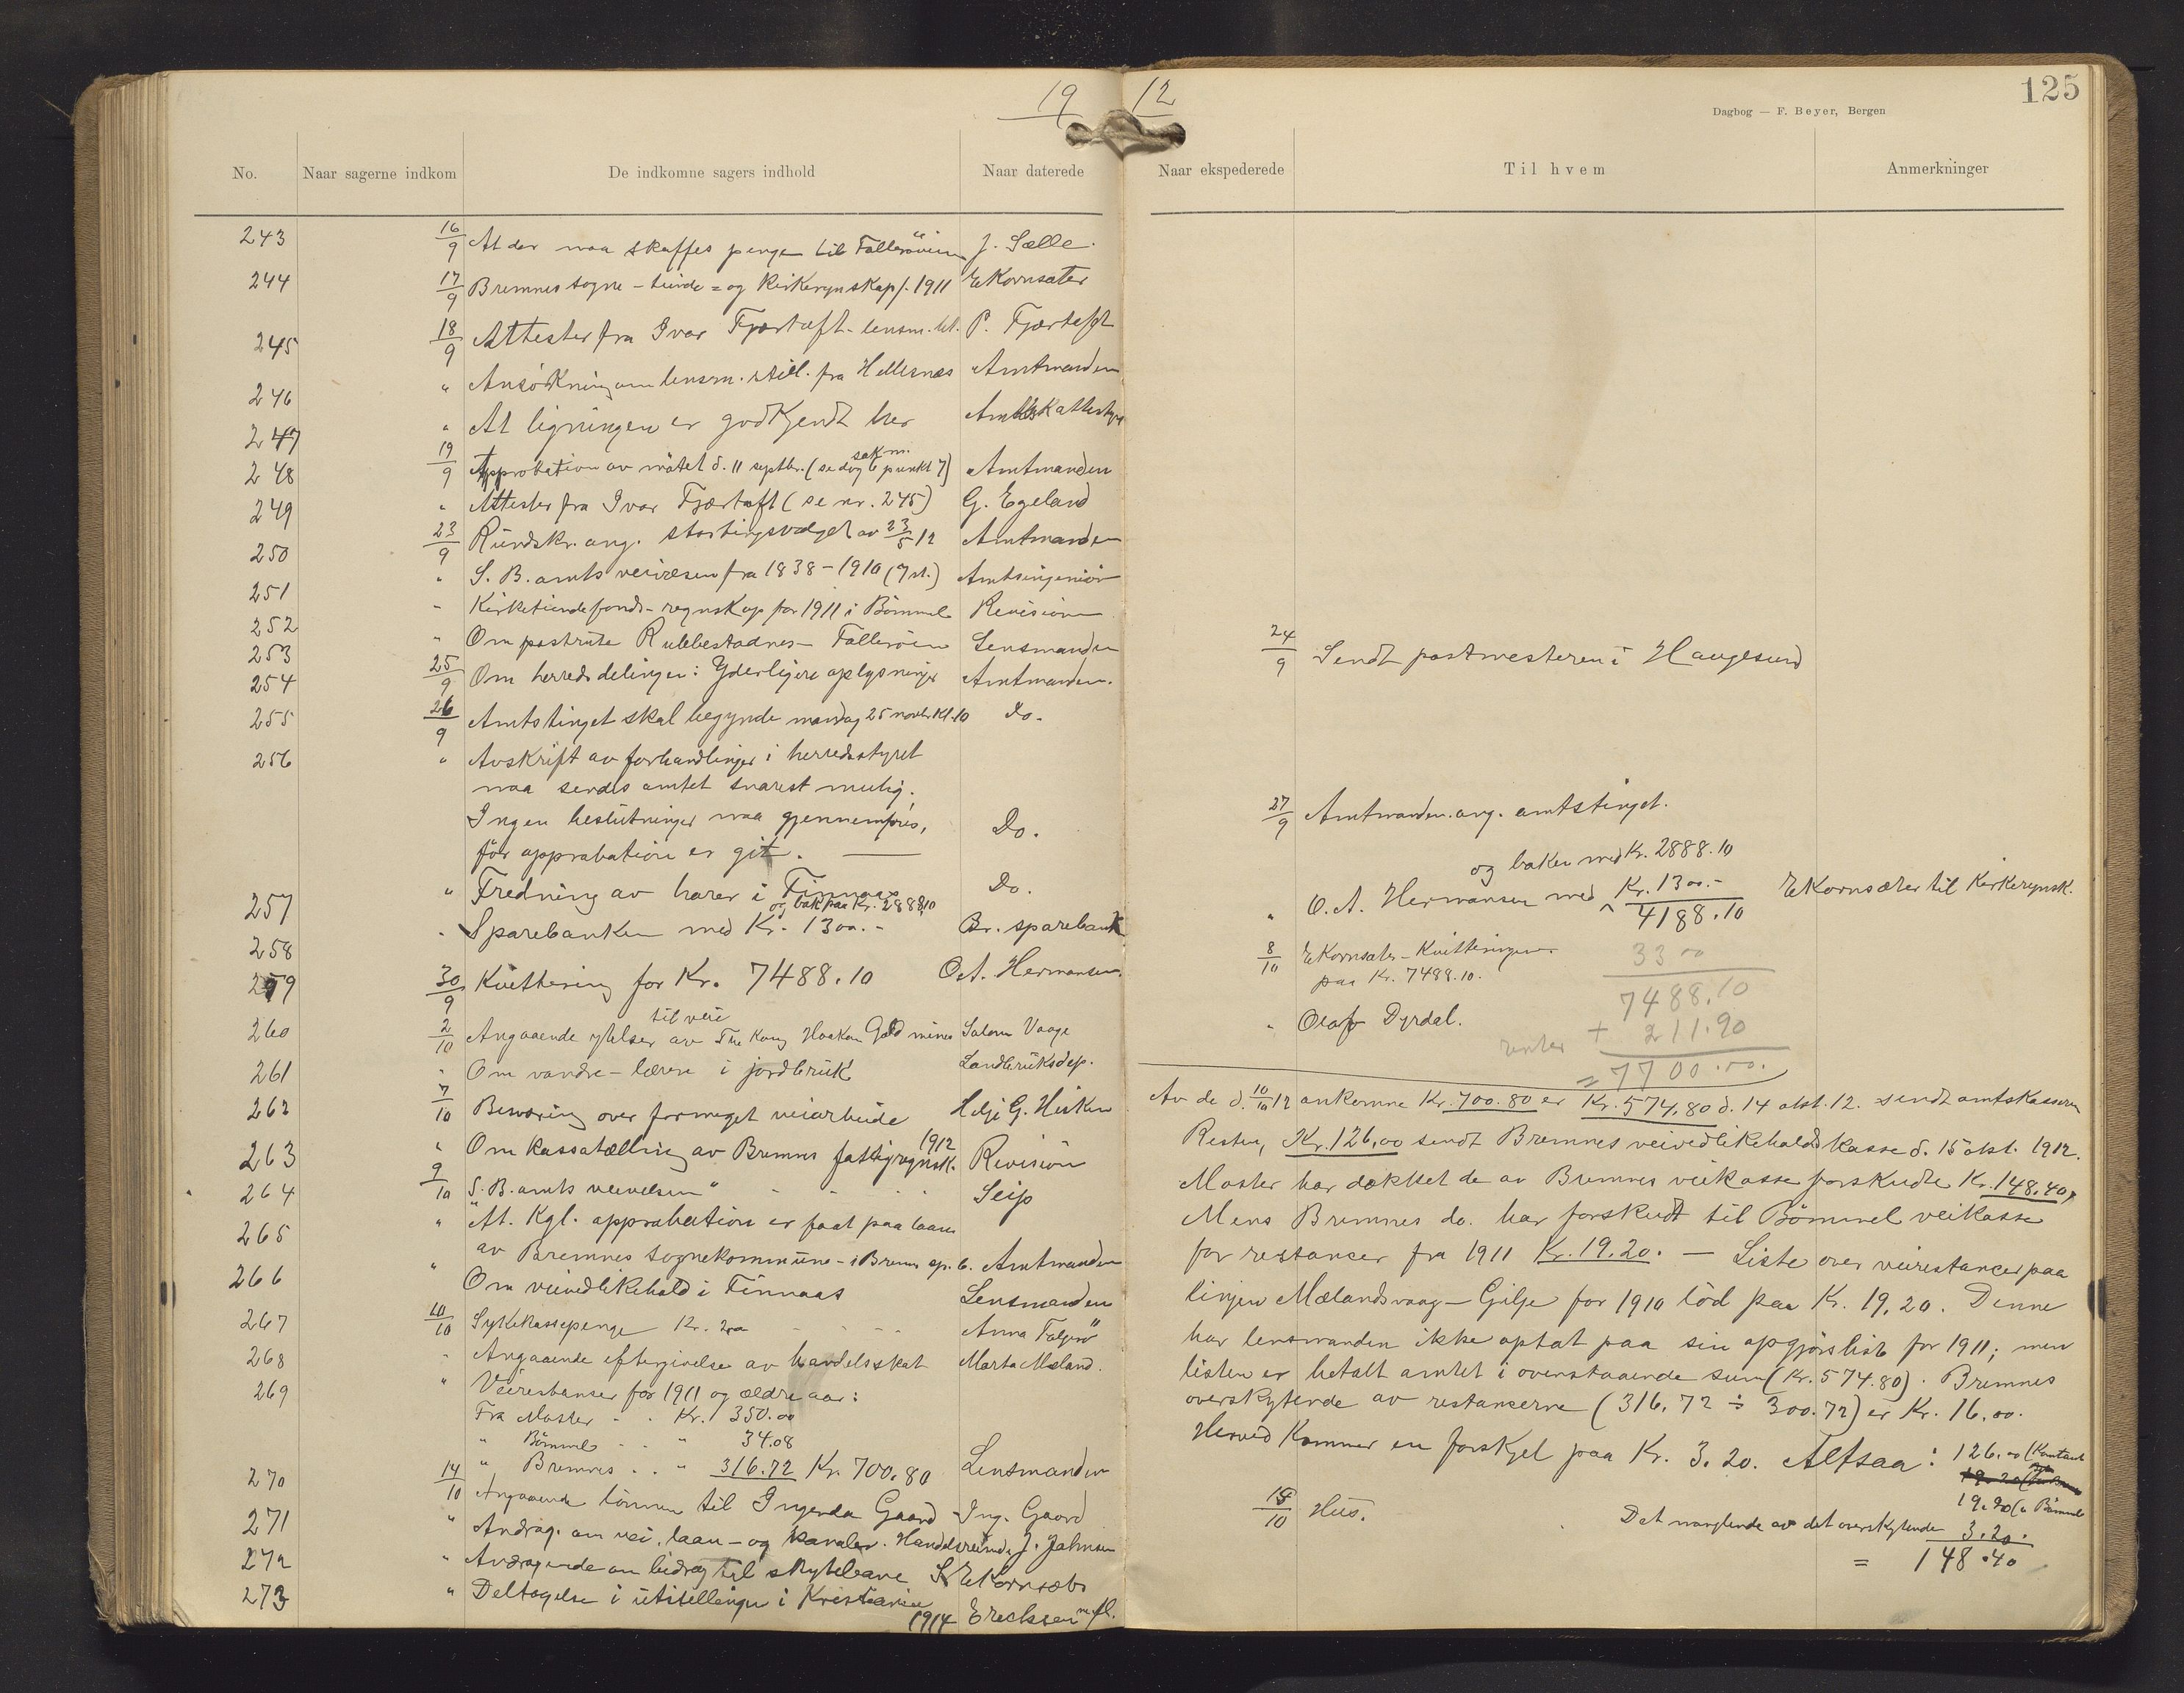 19 12
125
Dagbog — F. Beyer, Bergen
No. Naar sagerne indkom De indkomne sagers indhold Naar daterede Naar ekspederede Til hvem Anmerkninger
243 16/9 At der maa skaffes penge til J. Sælle.
244 17/9 Bremnes sogne - tiende = og Kirkerynskap f. 1911 Ekornsæter
245 18/9 Attester fra Ivar Fjærtoft - lensm. P. Fjærtoft
246 " Ansökning om lensm. still. fra Hellesnæs Amtmanden
247 " At ligningen er godkjendt her Amtsskattestyre
248 19/9 Approbation av mötet d. 11 septbr. (se dog sak m. 6 punkt 7) Amtmanden
249 " Attester fra Ivar Fjærtoft (se nr. 245) G. Egeland
250 23/9 Rundskr. ang. stortingsvalget av 23/5 12 Amtmanden
251 " S. B. amts veivæsen fra 1838 - 1910 (7 st.) Amtsingeniör
252 " Kirketiendefonds - regnskap for 1911 i Bömmel Revision
253 " Om postrute Rubbestadnes - Fölleröen Lensmanden
24/9 Sendt postmesteren i Haugesund
254 25/9 Om herredsdelingen: Yderligere oplysninger Amtmanden.
255 26/9 Amtstinget skal begynde mandag 25 novbr. kl. 10 Do.
256 " Avskrift av forhandlinger i herredsstyret
maa sendes amtet snarest mulig.
Ingen beslutninger maa gjennemföres,
för approbation er git. Do.
27/9 Amtmanden. ang. amtstinget.
257 " Fredning av harer i Finnaas Do.
og bak paa Kr. 2888,10
258 " Sparebanken med Kr. 1300.- Br. sparebank
og baken med Kr. 2888.10
" O. A. Hermansen med Kr. 1300.- Ekornsæter til Kirkerynsk.
4188.10
259 30/9 Kvittering for Kr. 7488.10 O. A. Hermansen
8/10 Ekornsæter - Kvitteringen
paa Kr. 7488.10.
3300
7488.10
260 2/10 Angaaende ytelser til vei av The Kong Haakon Gold mines Salom. Vaage
" Olaf Dyrdal.
renter + 211.90
= 7700.00.
261 " Om vandre - lærer i jordbruk Landbruksdep.
262 7/10 Besværing over formeget veiarbeide Helje G. Hisken
263 " Om kassatælling av Bremnes fattigregnsk. 1912 Revision
264 9/10 "S. B. amts veivæsen" Seip
265 " At. Kgl. approbation er faat paa laan
av Bremnes sognekommune - i Bremn. sp. b. Amtmanden
266 " Om veivedlikehold i Finnaas Lensmanden
267 10/10 Sykekassepenge Kr. Anna
268 " Angaaende eftergivelse av handelsskat Marta Mæland.
269 " Veirestanser for 1911 og ældre aar:
Fra Moster - - Kr. 350.00
" Bömmel - - " 34.08
" Bremnes - - " 316.72 Kr. 700.80 Lensmanden
270 14/10 Angaaende lönnen til Ingerda Gaard Ing. Gaard
271 " Andrag. om vei, laan - og kanaler. J. Jahnsen
272 " Andragende om bidrag til skytebane S. Ekornsæter
273 " Deltagelse i utstillingen i Kristiania
1914 Erechsen m. fl.
Av de d. 10/10 12 ankomne Kr. 700.80 er Kr. 574.80 d. 14 okt. 12. sendt amtskassereren
Resten, Kr. 126,00 sendt Bremnes veivedlikeholdskasse d. 15 okt. 1912.
Moster har dækket de av Bremnes veikasse forskudte Kr. 148.40,
Mens Bremnes do. har forskudt til Bömmel veikasse
for restancer fra 1911 Kr. 19.20. — Liste over veirestancer paa
linjen Mælandsvaag - Gilje for 1910 löd paa Kr. 19,20. Denne
har lensmanden ikke optat paa sin opgjörsliste for 1911; men
listen er betalt amtet i ovenstaaende sum (Kr. 574.80). Bremnes
overskytende av restanserne (316.72 ÷ 300.72) er Kr. 16.00.
Herved kommer en forskjel paa Kr. 3.20. Altsaa: 126.00 (Kontant
19.20 (a Bömmel
15/10 Hus.
Det manglende av det overskytende 3.20.
= 148.40